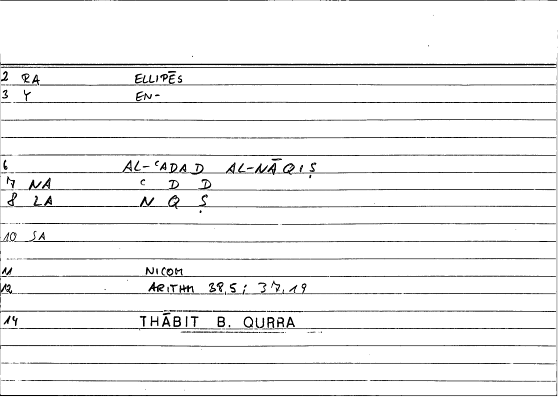 2 RA ELLIPĒS
3 Y EN-
6 AL-ʿADAD AL-NĀQIṢ
7 NA ʿ D D
8 LA N Q Ṣ
10 SA
11 NICOM
12 ARITHM 38,5; 37,19
14 THĀBIT B. QURRA